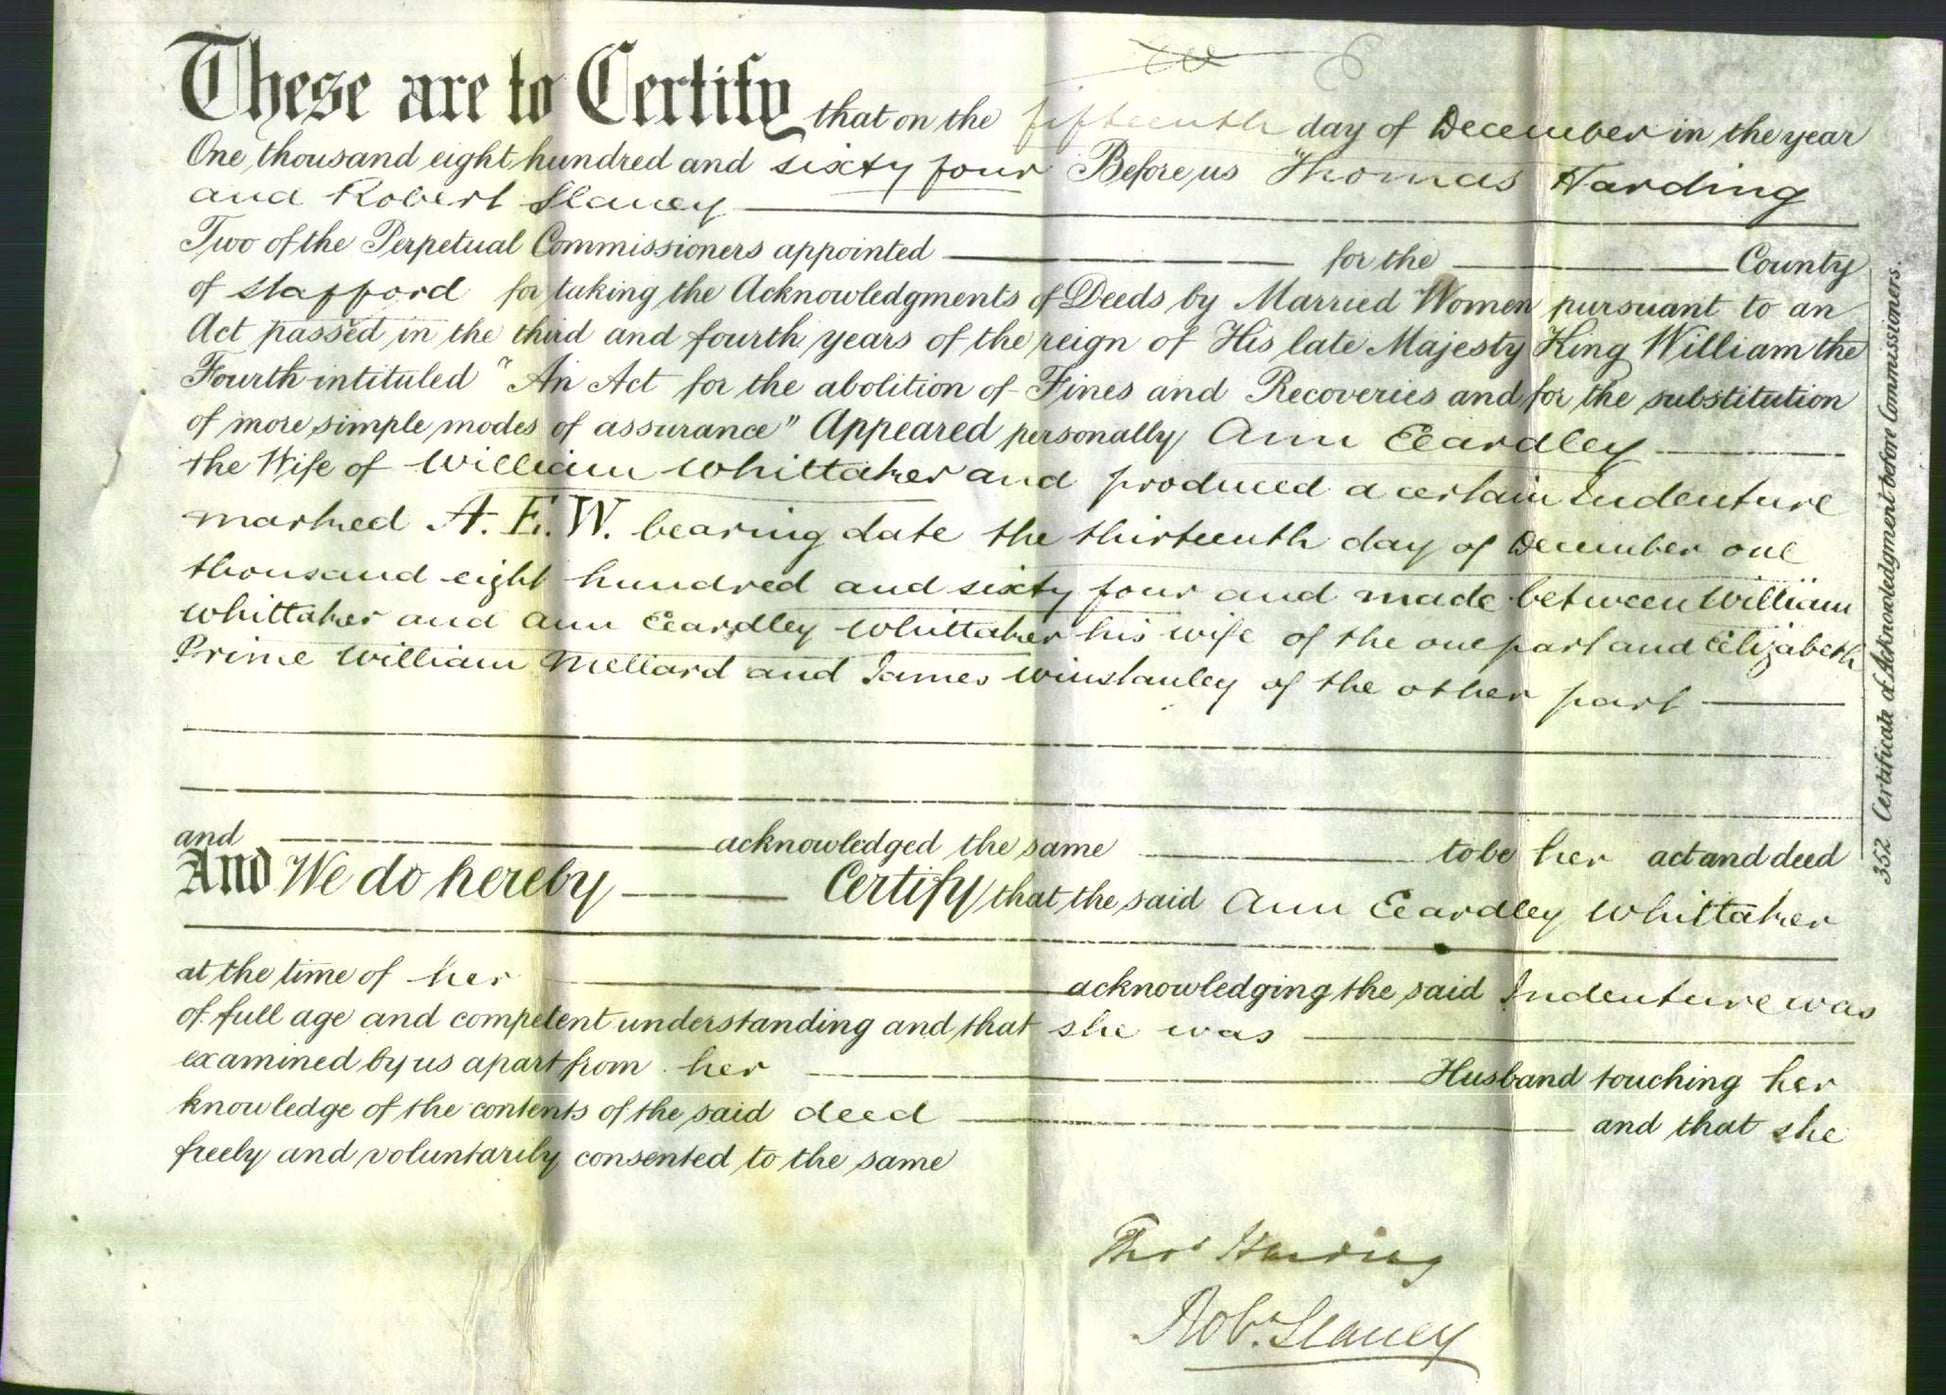 These are to Certify that on the fifteenth day of December in the year
One thousand eight hundred and sixty four Before us Thomas Harding
and Robert Slaney
Two of the Perpetual Commissioners appointed for the County
of Stafford for taking the Acknowledgments of Deeds by Married Women pursuant to an
Act passed in the third and fourth years of the reign of His late Majesty King William the
Fourth intituled "An Act for the abolition of Fines and Recoveries and for the substitution
of more simple modes of assurance" Appeared personally Ann Eeardley
the Wife of William Whittaker and produced a certain Indenture
marked A. E. W. bearing date the thirteenth day of December one
thousand eight hundred and sixty four and made between William
Whittaker and Ann Eeardley Whittaker his wife of the one part and Elizabeth
Prime William Mellard and James Winstanley of the other part
and acknowledged the same to be her act and deed
And We do hereby Certify that the said Ann Eeardley Whittaker
at the time of her acknowledging the said Indenture was
of full age and competent understanding and that she was
examined by us apart from her Husband touching her
knowledge of the contents of the said deed and that she
freely and voluntarily consented to the same
Thos Harding
Robt. Slaney
352 Certificate of Acknowledgment before Commissioners.